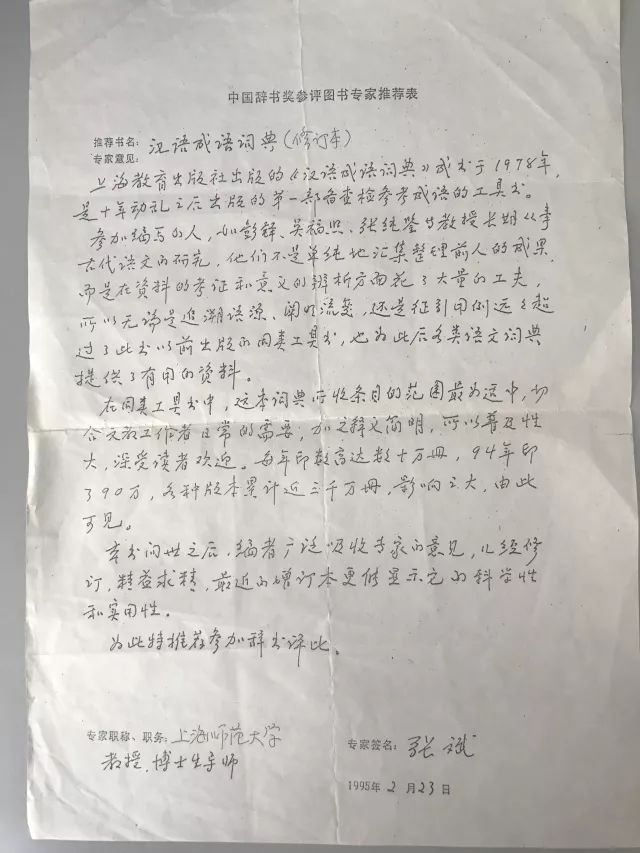 中国辞书奖参评图书专家推荐表
推荐书名：汉语成语词典（修订本）
专家意见：
上海教育出版社出版的《汉语成语词典》成书于1978年，
是十年动乱之后出版的第一部备查检参考成语的工具书。
参加编写的人，如彭铎、吴福熙、张纯鉴等教授长期从事
古代语文的研究，他们不是单纯地汇集整理前人的成果，
而是在资料的考证和意义的辨析方面花了大量的工夫，
所以无论是追溯语源、阐明流变，还是征引用例远远超
过了此书以前出版的同类工具书，也为此后各类语文词典
提供了有用的资料。
在同类工具书中，这本词典所收条目的范围最为适中，切
合文教工作者日常的需要；加之释义简明，所以普及性
大，深受读者欢迎。每年印数高达数十万册，94年印
了90万，各种版本累计近三千万册，影响之大，由此
可见。
本书问世之后，编者广泛吸收专家的意见，几经修
订，精益求精，最近的增订本更能显示它的科学性
和实用性。
为此特推荐参加辞书评比。
专家职称、职务：上海师范大学
教授、博士生导师
专家签名：张斌
1995年2月23日